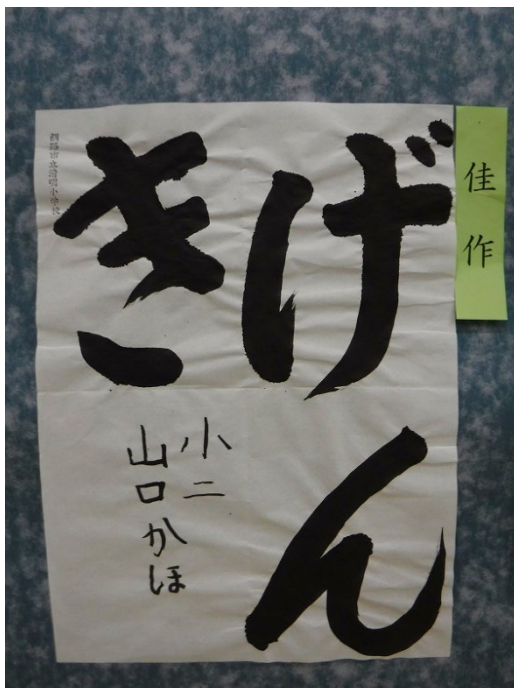 佳作
げん
き
小二
山口かほ